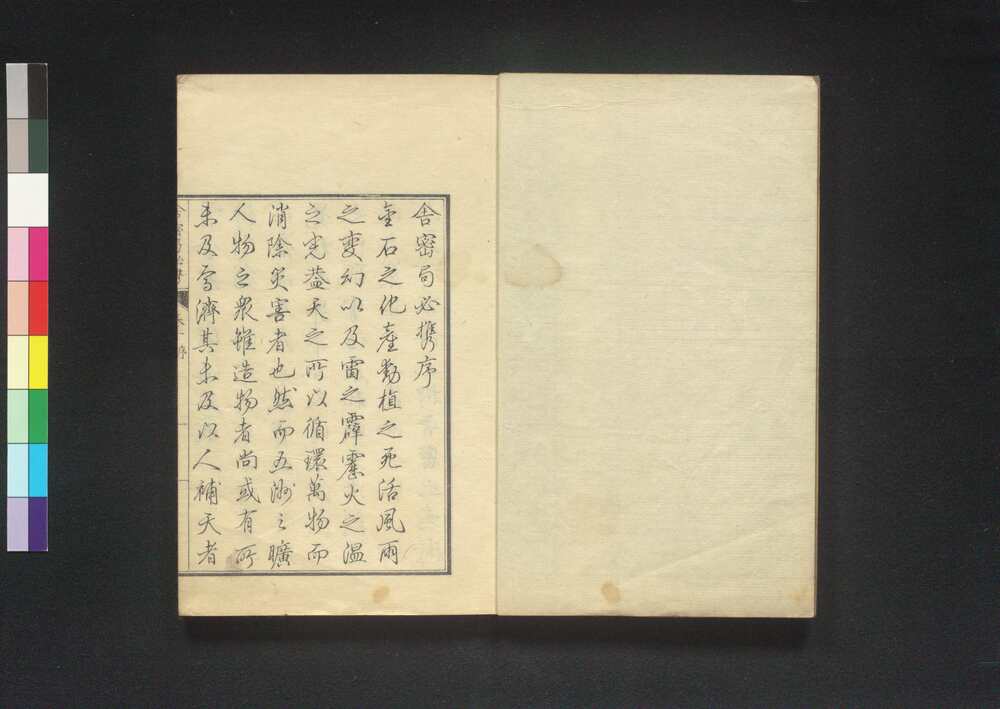 舎密局必携序
金石之化産動植之死活風雨
之変幻以及雷之霹靂火之温
之光葢天之所以循環萬物而
消除災害者也然而五洲之曠
人物之衆雖造物者尚或有所
未及焉済其未及以人補天者
舎密局必携
巻一 序